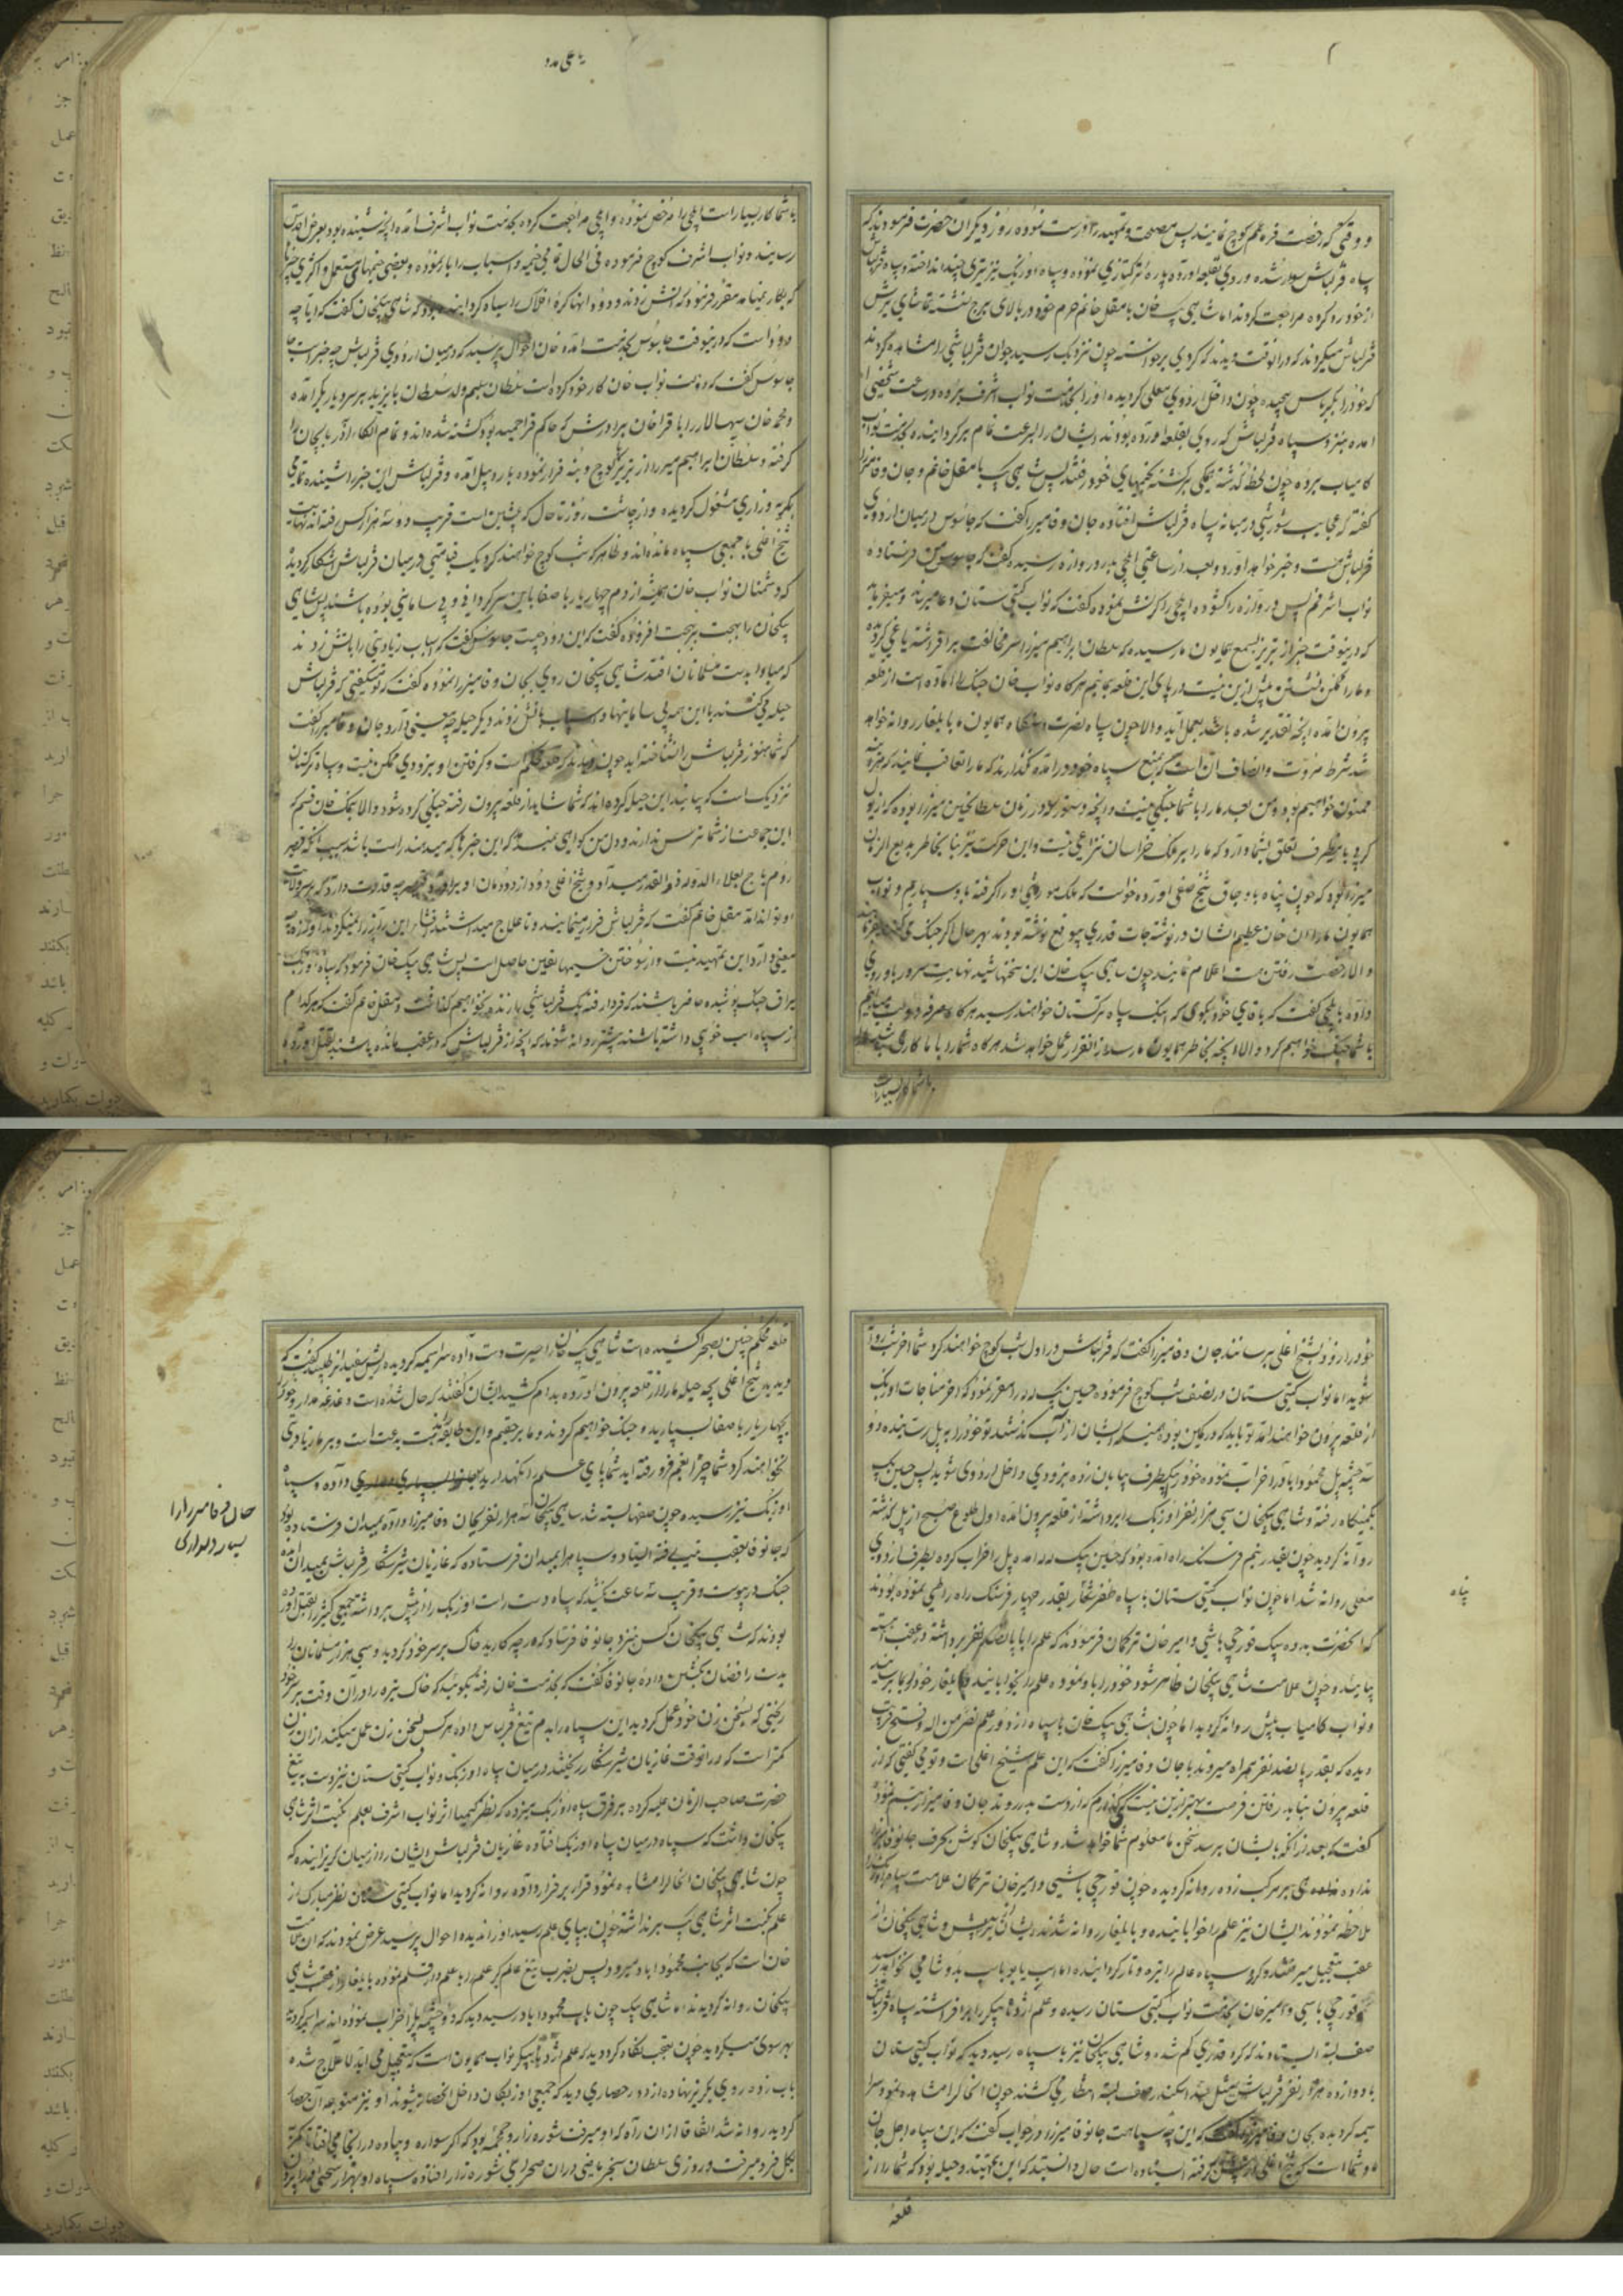 یا علی مدد
و وقتی که رخصت فره علم کوچ نمایند پس مصلحت و تمهید را درست نموده روز دیگر ان حضرت فرمودند که
سپاه قزلباش سوار شده رو بقلعه اورده پاره ترکتازی نموده و سپاه اوزبک نیز تیری چند انداخته و سپاه قزلباش
از خود رد کرده مراجعت کردند اما شاهی بیک خان با مغل خانم حرم خود در بالای برج نشسته تماشای یرش
قزلباش میکردند که در انوقت دیدند که کردی برخواسته چون نزدیک رسید جوان قزلباشی را مشاهده کردند
که خود را بکرباس پیچیده چون داخل اردوی معلی کردیده او را بخدمت نواب اشرف برده و در ساعت شخصی
امده بنزد سپاه قزلباش که روی بقلعه اورده بودند ایشان را بسرعت تمام برکردانیده بخدمت نواب
کامیاب برده چون لحظه گذشته همکی برکشته بخیمهای خود رفتند پس شاهی بیک با مغل خانم و جان وفا میرزا
گفته که عجایب شورشی در میانه سپاه قزلباش افتاده جان وفا میرزا گفت که جاسوس در میان اردوی
قزلباش هست و خبر خواهد اورد و بعد از ساعتی ایلچی بدر دروازه رسیده گفت که جاسوس من فرستاده
نواب اشرفم پس دروازه را کشوده ایلچی را کرنش نموده گفت که نواب کیتی ستان دعا میرساند و میفرماید
که درینوقت خبر از تبریز بسمع همایون ما رسیده که سلطان ابراهیم میرزا سر مخالفت برافراشته یاغی کردیده
و ما را ممکن نیست پیش ازین در پای این قلعه بمانیم هرکاه نواب خان جنک را اماده است از قلعه
بیرون امده انچه تقدیر شده باشد بعمل اید و الا چون سپاه نصرت دستکاه همایون ما بایلغار روانه خواهد
شد شرط مروت و انصاف ان است که منع سپاه خود در امده نگذارند که ما را تعاقب نمایند که
ممنون خواهیم بود و من بعد ما را با شما جنکی نیست و انچه دستور در زمان سلطان حسین میرزا بوده
کرچه باینطرف تعلق بشما دارد که ما را بر ملک خراسان نزاعی نیست و این حرکت نیز بنا بخاطر بدیع الزمان
میرزا بود که چون پناه باوجاق شیخ صفی اورده خواست که ملک موروثی او را کرفته باو سپاریم و نواب
همایون ما را ان خان عظیم الشان در نوشته جات قدری بموقع نوشته بودند بهر حال اکر جنک میکنند
و الا رخصت رفتن ما اعلام نمایند چون شاهی بیک خان این سخنها شنید نهایت سرور باو روی
داده بایلچی گفت که باقای خود بکوی که اینک سپاه ترکستان خواهند رسید هرکاه صرفه دولت میدانیم
با شما جنک خواهیم کرد و الا انچه بخاطر همایون ما رسد از انقرار عمل خواهد شد هرکاه شما را با ما کاری نیست ما را
با شما کار بسیار است
با شما کار بسیار است ایلچی را مرخص نموده و ایلچی مراجعت کرده بخدمت نواب اشرف امده انچه شنیده بود بعرض اقدس
رسانیده و نواب اشرف کوچ فرموده فی الحال تمامی خیمه و اسباب را بار نموده و بعضی خیمهای مستعمل و اکثری
که بکار نمیامد مقرر فرمود که اتش زدند و دود انها کره افلاک را سیاه کردانیده بود که شاهی بیکخان گفت که ایا چه
دود است که درینوقت جاسوس بخدمت امده خان احوال پرسید که در میان اردوی قزلباش چه خبر است
جاسوس گفت که دولت نواب خان کار خود کرده است سلطان سلیم ولد سلطان بایزید بر سر دیاربکر امده
و محمد خان سپهسالار را با قراخان برادرش که حاکم قراحمید بود کشته شده اند و تمام الکاء اذربایجان را
کرفته و سلطان ابراهیم میرزا از تبریز کوچ و بنه فرار نموده باردبیل امده و قزلباش این خبر را شنیده تمامی
بکریه و زاری مشغول کردیده و از چاشت روز تا حال که پیشین است قریب دو سه هزار کس رفته اند
شیخ اغلی با جمعی سپاه مانده اند و ظاهرا که شب کوچ خواهند کرد یک قیامتی در میان قزلباش اشکار کردیده
که دشمنان نواب خان همیشه از دم چهار یار با صفا باین سرکردانی و بی سامانی بوده باشند پس شاهی
بیکخان را بهجت بر بهجت افزوده گفت که این دود چیست جاسوس گفت که اسباب زیادتی را باتش زدند
که مبادا بدست مسلمانان افتد شاهی بیکخان روی بجان وفا میرزا نموده گفت که تو میکفتی که قزلباش
حیله میکنند با این همه بی سامانیها و اسباب باتش زدند دیکر حیله چه معنی دارد جان وفا میرزا گفت
که شما هنوز قزلباش را نشناخته اید چون دیدند که قلعه محکم است و کرفتن او بزودی ممکن نیست و سپاه ترکستان
نزدیک است که بیایند این حیله کرده اند که شما شاید از قلعه بیرون رفته جنکی کرده شود و الا بنمک خان قسم که
این جماعت از شما ترس ندارند و دل من کواهی نمیدهد که این خبرها که میدهند راست باشد سبب انکه قیصر
روم باج بعلاء الدوله ذوالقدر میداد و شیخ اغلی دود از دودمان او براورد قیصر چه قدرت دارد که بر سر ولایت
او تواند امد مغل خانم گفت که قزلباش فرار مینمایند و تا علاج میداشتند افشای این راز را نمیکردند
معنی دارد این تمهید نیست و از سوختن خیمها یقین حاصل است پس شاهی بیک خان فرمود که سپاه اوزبک
یراق جنک پوشیده حاضر باشند که فردا رفته یک قزلباشی باز زنده نخواهیم گذاشت و مغل خانم گفت که هر کدام
از سپاه اسب خوبی داشته باشند پیشتر روانه شوند که انچه از قزلباش که در عقب مانده باشند بقتل اورده
خود را زود بشیخ اغلی برسانند جان وفا میرزا گفت که قزلباش در اول شب کوچ خواهند کرد شما اخر شب روانه
شوید اما نواب کیتی ستان در نصف شب کوچ فرموده حسین بیک لله را مقرر نمود که اخر مناجات اوزبک
از قلعه بیرون خواهند امد تو باید که در کمین بوده همینکه ایشان از اب گذشتند تو خود را به پل رسانیده دو
سه چشمه پل محموداباد را خراب نموده خود را بیکطرف بیابان زده بزودی داخل اردوی شوید پس حسین بیک
بکمینکاه رفته و شاهی بیکخان سی هزار نفر اوزبک را برداشته از قلعه بیرون امده اول طلوع صبح از پل گذشته
روانه کردید چون بقدر نیم فرسنک راه امده بود که حسین بیک لله امده پل را خراب کرده بطرف اردوی
معلی روانه شد اما چون نواب کیتی ستان با سپاه ظفر شعار بقدر چهار فرسنک راه را طی نموده بودند
که انحضرت بدده بیک قورچی باشی و امیر خان ترکمان فرمودند که علم را با پانصد نفر برداشته و در عقب اهسته
بیایند و چون علامت شاهی بیکخان ظاهر شود خود را باو نموده علم را بخوابانید و بایلغار خود را بما برسانید
و نواب کامیاب پیش روانه کردید اما چون شاهی بیک خان با سپاه از دور علم نصر من الله و فتح قریب
دیده که بقدر پانصد نفر همراه میروند با جان وفا میرزا گفت که این علم شیخ اغلی است و تو می گفتی که از
قلعه بیرون نباید رفتن فرصت بهتر ازین نیست که نگذارم که از دست بدر روند جان وفا میرزا تبسم نمود
گفت که بعد از انکه بایشان برسید سخن ما معلوم شما خواهد شد و شاهی بیکخان کوش بحرف جان وفا میرزا
نداده نهیب بر مرکب زده روانه کردیده چون قورچی باشی و امیر خان ترکمان علامت سپاه اوزبک را
ملاحظه نمودند ایشان نیز علم را خوابانیده و بایلغار روانه شدند ایشان در پیش و شاهی بیکخان از
عقب بتعجیل میرفتند و کرد سپاه عالم را تیره و تار کردانیده
قورچی باشی و امیر خان بخدمت نواب کیتی ستان رسیده و علم اژدها پیکر را برافراشته سپاه قزلباش
صف بسته ایستادند که کرد قدری کم شده و شاهی بیکخان نیز با سپاه رسید دید که نواب کیتی ستان
با دوازده هزار نفر قزلباش مثل سد اسکندر صف بسته انتظار میکشند چون انحال را مشاهده نمود سرا
سیمه کردیده بجان وفا میرزا گفت که این چه سپاهست جان وفا میرزا در جواب گفت که این سپاه اجل جان
ما و شما است که شیخ اغلی در پیش گرفته ایستاده است حال دانستید که این تمهید و حیله بود که شما را از
قلعه
پناه
قلعه محکم چنین بصحرا کشیده است شاهی بیک خان را حیرت دست داده سراسیمه کردیده ریش سفیدان را طلبیده گفت که
دیدید شیخ اغلی بچه حیله ما را از قلعه بیرون اورده بدام کشید ایشان گفتند که حال شده است دغدغه مدار و خود را
بچهار یار با صفا بسپارید و جنک خواهیم کردند و ما بر حقیم و این طایفه مذهب بدعت است و بر ما زیادتی
نخواهند کرد شما چرا بغم فرو رفته اید شما پای علم را نکهدارید
اوزبک نیز رسیده چون صفها بسته شد شاهی بیکخان سه هزار نفر بجان وفا میرزا داده بمیدان فرستاده بود
که جان وفا بعقب تیپ رفته ایستاد و سپاه را بمیدان فرستاده که غازیان شیر شکار قزلباش بمیدان امده
جنک در پیوست و قریب سه ساعت کشید که سپاه دست راست اوزبک را از پیش برداشته جمعی کثیر را بقتل اورده
بودند که شاهی بیکخان کس بنزد جان وفا فرستاد که هر چه کارید خاک بر سر خود کردید و سی هزار مسلمانان را
بدست رافضیان بکشتن داده جان وفا گفت که بخدمت خان رفته بکوئید که خاک تیره را در ان وقت بر سر خود
ریختی که بسخن زن خود عمل کردید این سپاه را بدم تیغ قزلباش داده هر کس بسخن زن عمل میکند از ان زن
کمتر است که در انوقت غازیان شیر شکار ریختند در میان سپاه اوزبک و نواب کیتی ستان نیز دست به تیغ
حضرت صاحب الزمان علیه کرده بر فرق سپاه اوزبک میزده که نظر کیمیا اثر نواب اشرف بعلم نکبت اثر شاهی
بیکخان داشت که سپاه در میان سپاه اوزبک افتاده غازیان قزلباش ایشان را از میان کریزانیده که
چون شاهی بیکخان انحال را مشاهده نمود قرار بر فرار داده روانه کردید اما نواب کیتی ستان نظر مبارک از
علم نکبت اثر شاهی بیک برنداشته چون بپای علم رسید او را ندیده احوال پرسید عرض نمودند که ان
خان است که بجانب محموداباد میرود پس بضرب تیغ عالم کیر علم را با علمدار قلم نموده بایلغار از عقب شاهی
بیکخان روانه کردیدند اما شاهی بیک چون باب محموداباد رسید دید که دو چشمه پل را خراب نموده اند سراسیمه کردیده
بهر سوی میکردید چون بعقب نکاه کرد دید که علم اژدها پیکر نواب همایون است که بتعجیل می اید لا علاج شده
باب زده روی بکریز نهاده از دور حصاری دید که جمعی اوزبکان داخل انحصار میشوند او نیز متوجه ان حصار
کردید روانه شد اتفاقا از ان راه که او میرفت شوره زار و جمجمه بود که اکر سواره و پیاده در انجا می افتاد تا کمر
بکل فرو میرفت و روزی سلطان سنجر ماضی در ان صحرای شوره زار افتاده سپاه او بهزار سختی
جان وفا میرزا را
بسیار دلداری